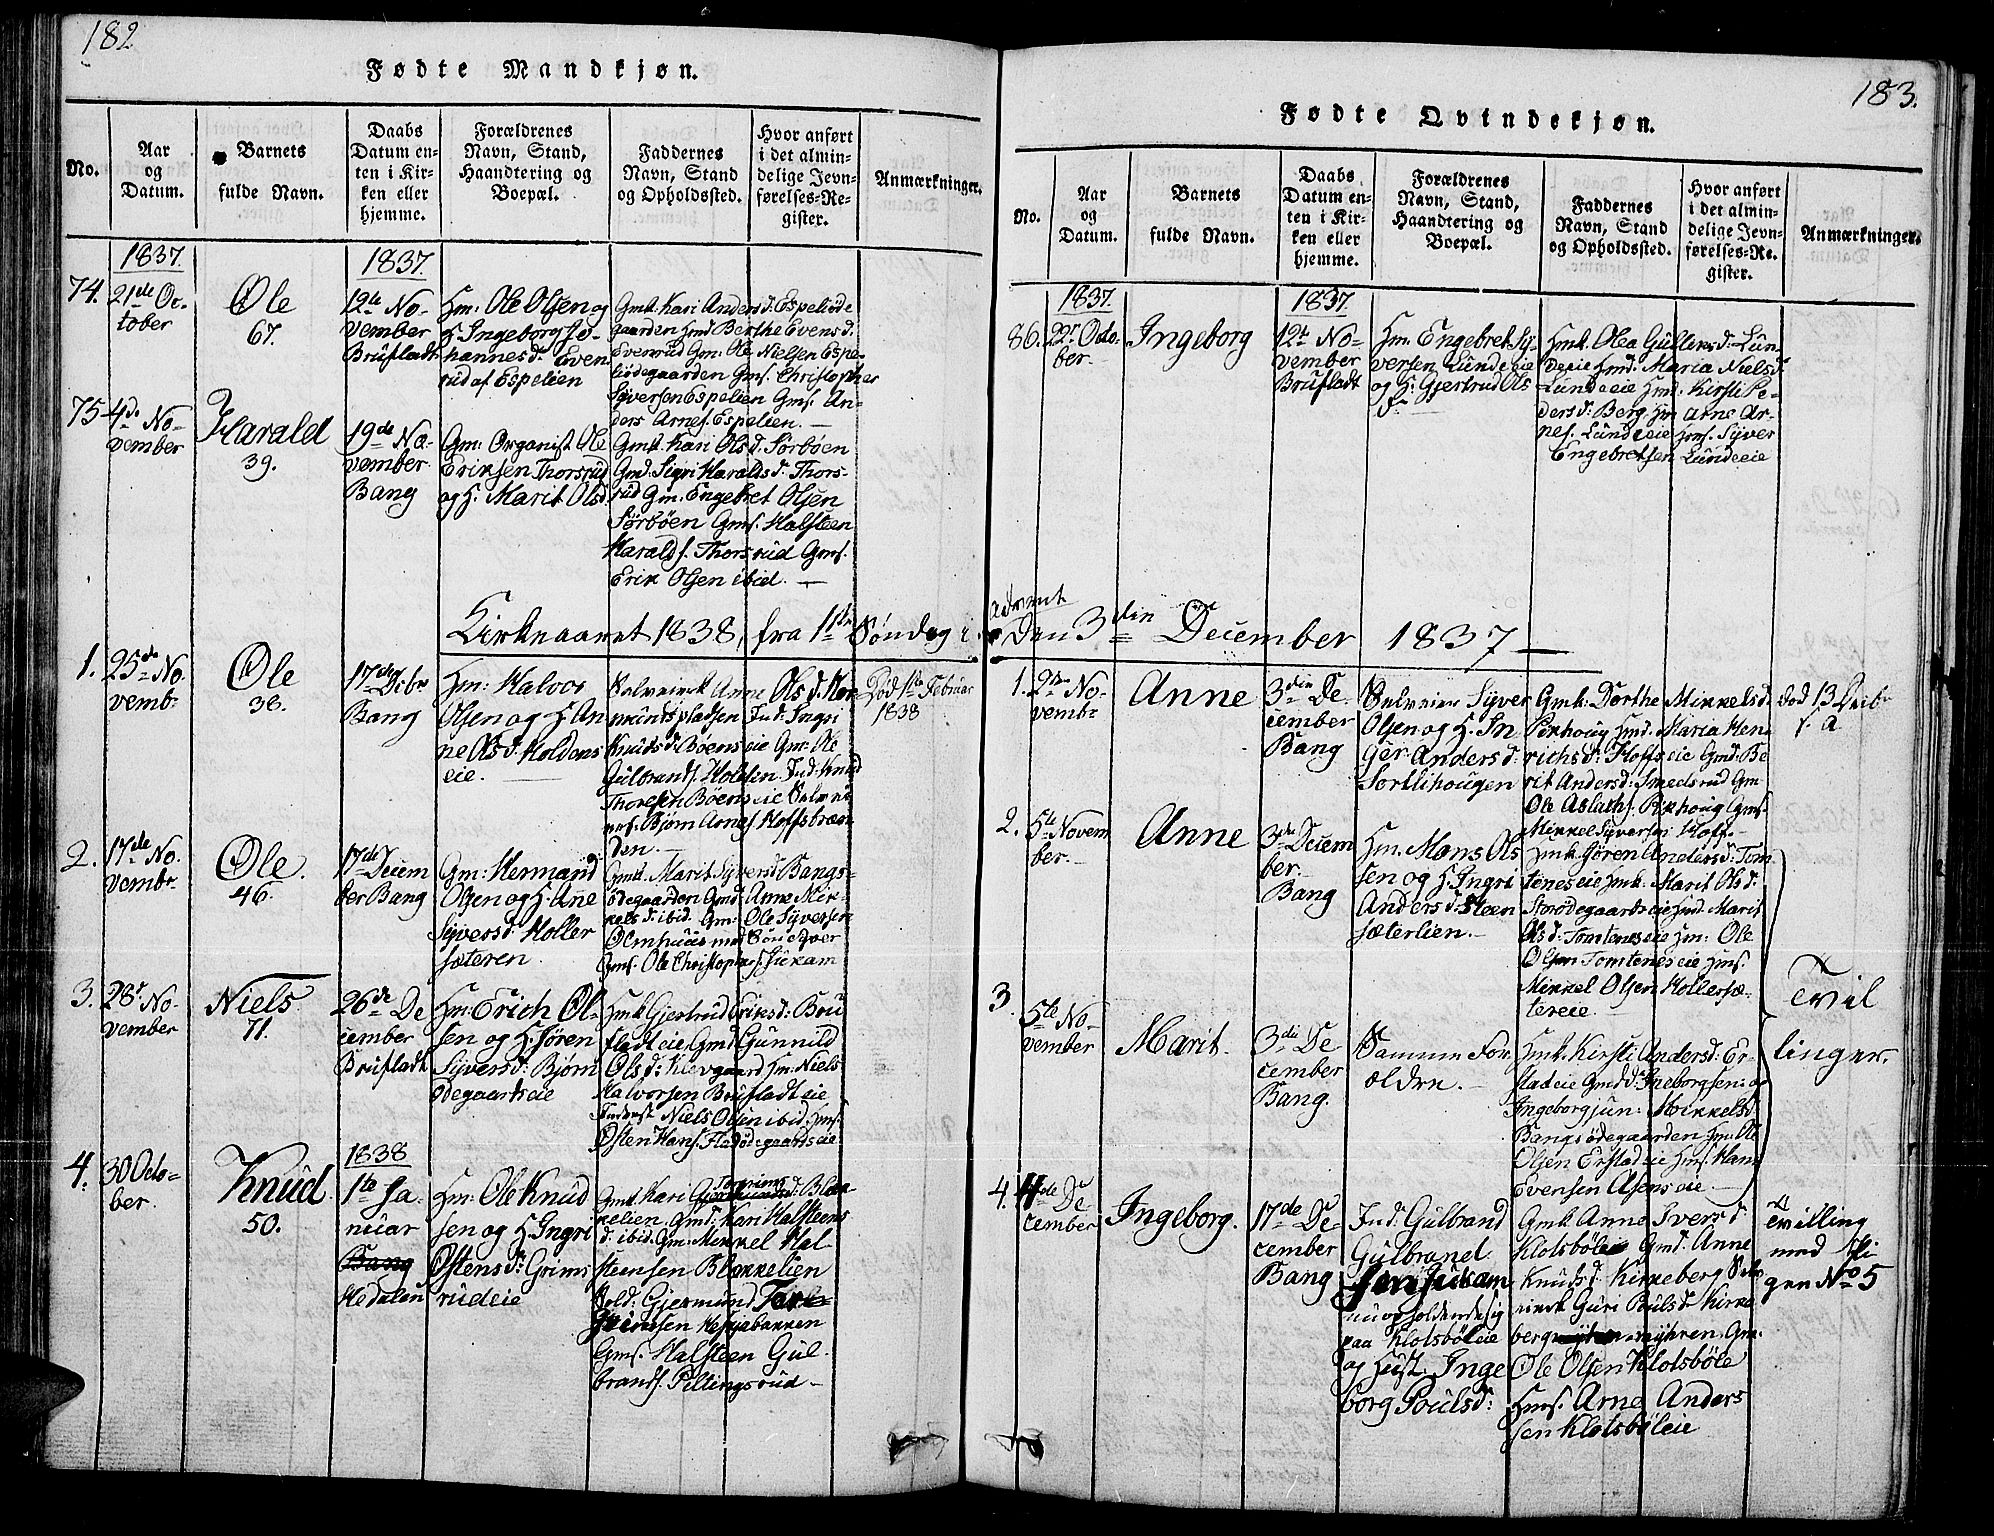 182
Fødte Mandkjøn.
No.
Aar
og
Datum.
Barnets
fulde Navn.
Daabs
Datum en-
ten i Kir-
ken eller
hjemme.
Forældrenes
Navn, Stand,
Haandtering og
Boepæl.
Faddernes
Navn, Stand
og Opholdssted.
Hvor anført
i det almin-
delige Jevn-
førelses-Re-
gister.
Anmærkninger.
1837.
1837.
74.
21de Oc-
tober
Ole
67.
12te No-
vember
Brufladt
Hm: Ole Olsen og
H. Ingeborg Jo-
hannesd: Even
rud af Espelien
Gmk Kari Andersd: Espeliøde
gaarden Hmd Berthe Evensd:
Evenrud Gm: Ole Nielsen Espe-
liødegaarden Gms. Christopher
Syversen Espelien Gms. An-
ders Arnes. Espelien.
75
4de No-
vember
Harald
39.
19de No-
vember
Bang
Gm: Organist Ole
Eriksen Thorsrud
og H. Marit Olsd.
Gmk Kari Olsd: Sørbøen
Gmd. Sigri Haraldsd: Thors-
rud Gm. Engebret Olsen
Sørbøen Gms. Halsteen
Haralds. Thorsrud Gms.
Erik Olsen ibid.
Kirkeaaret 1838, fra 1ste Søndag i
1.
25de No-
vembr
Ole
38.
17de Decbr
Bang
Hm: Halvor
Olsen og H. An
ne Olsd: Holdens
eie.
Selveiersk Anne Olsd: Kor
rundspladsen Ind: Ingri
Knudsd: Bøens eie Gm: Ole
Gulbrands. Holdsen Ind: Knud
Thoresen Bøens eie Selvei
ers. Bjørn Arnes. Hoffsbraa
den.
Død 1te Februar
1838
2.
17de No-
vembr
Ole.
46.
17de Decem
ber Bang
Gm: Hermand
Olsen og H. Ane
Syversd: Holler
sæteren.
Gmk. Marit Syversd Bangs-
ødegaarden Gmd: Anne Mik-
kelsd: ibid. Gm: Ole Syversen
Gms. Ole Christophers. Jukam
3.
28de No-
vember
Niels
71.
26de De
cember
Brufladt
Hm: Erich Ol-
sen og H. Jøren
Syversd: Bjørn
ødegaardseie
Hmk Gjertrud Eriksd: Bru
fladteie Gmd: Gunnild
Olsd: Klevgaard Hm: Niels
Halvorsen Brufladteie
Inderst Niels Olsen ibid. Hms.
Østen Hans. Fladødegaardseie
4.
30 Octo-
ber.
Knud.
50.
1838
1te Ja-
nuar
Bang
Hedalen
Hm: Ole Knud
sen og H. Ingri
Østensd: Grims
rudeie
Gmk Kari Torgrimsd: Blæk-
kelien. Gmd: Kari Halsteens
d: ibid. Gm: Mikkel Hal-
steensen Blækkelien
Sold: Gjermund Tor
grimsen Heiyabakken
Gms. Halsteen Gul-
brands. Piltingsrud
183.
Fødte Qvindekjøn.
No.
Aar
og
Datum.
Barnets
fulde Navn.
Daabs
Datum en-
ten i Kir-
ken eller
hjemme.
Forældrenes
Navn, Stand,
Haandtering og
Boepæl.
Faddernes
Navn, Stand
og Opholdssted.
Hvor anført
i det almin-
delige Jevn-
førelses-Re-
gister.
Anmærkninger.
1837.
1837.
86.
22de Octo-
ber.
Ingeborg
12te No-
vember
Brufladt
Hm: Engebret Sy-
versen Lundeeie
og H: Gjertrud Ols
d:
Hmk. Olea Gullensd: Lun-
deeie Hmd: Maria Nielsd:
Lundeeie Hmd: Kirsti Pe-
dersd: Berg Hm Arne Ar-
nes. Lundeeie Hms. Syver
Engebretsen Lundeeie
Advent
den 3die December 1837
1.
2den No-
vembr
Anne
3die De
cember
Bang
Selveier Syver
Olsen og H. In
ger Andersd:
Sortlihougen
Gmk: Dorthe Mikkelsd:
Perhoug Hmd: Maria Hen
richsd: Hoffseie Gmd: Be
rit Andersd: Smedsrud Gm
Ole Aslaths. Perhoug Gms.
Mikkel Syversen Hoff.
død 13 Decbr
s. a
2.
5te Novem
ber
Anne
3die Decem
ber.
Bang
Hm. Mons Ols
sen og H. Ingri
Andersd: Steen
sæterlien.
Hmk. Jøren Andersd: Tom-
teneseie Hmk. Marit Olsd:
Storødegaardseie Hmd: Marit
Olsd: Tomteneseie Hm: Ole
Olsen Tomteneseie Hms.
Mikkel Olsen Hollersæ-
tereie.
3.
5te No-
vember
Marit.
3die De
cember
Bang.
Samme For
ældre.
Hmk. Kirsti Andersd: Er-
stadeie Gmdd: Ingeborg sen: og
Ingeborg jun: Mikkelsd.
Bangsødegaarden Hm: Ole
Olsen Erstadeie Hms. Hans
Evensen Alsenseie
Tvil
linger.
4.
4de De
cember
Ingeborg.
17de De-
cember
Bang
Ind: Gulbrand
Gulbrand
sen Jukam
nu opholdende sig
paa Klotsbøleie
og Hust. Inge
borg Poulsd:
Gmk Anne Iversd
Klotsbøleie Gmd. Anne
Knudsd. Kirkeberg Selv
eiersk Guri Poulsd Kirke
berg myhren. Gm.
Ole Olsen Klotsbøle
Hms. Arne Anders
sen Klotsbøleie
Tvilling
med Pi
gen No 5